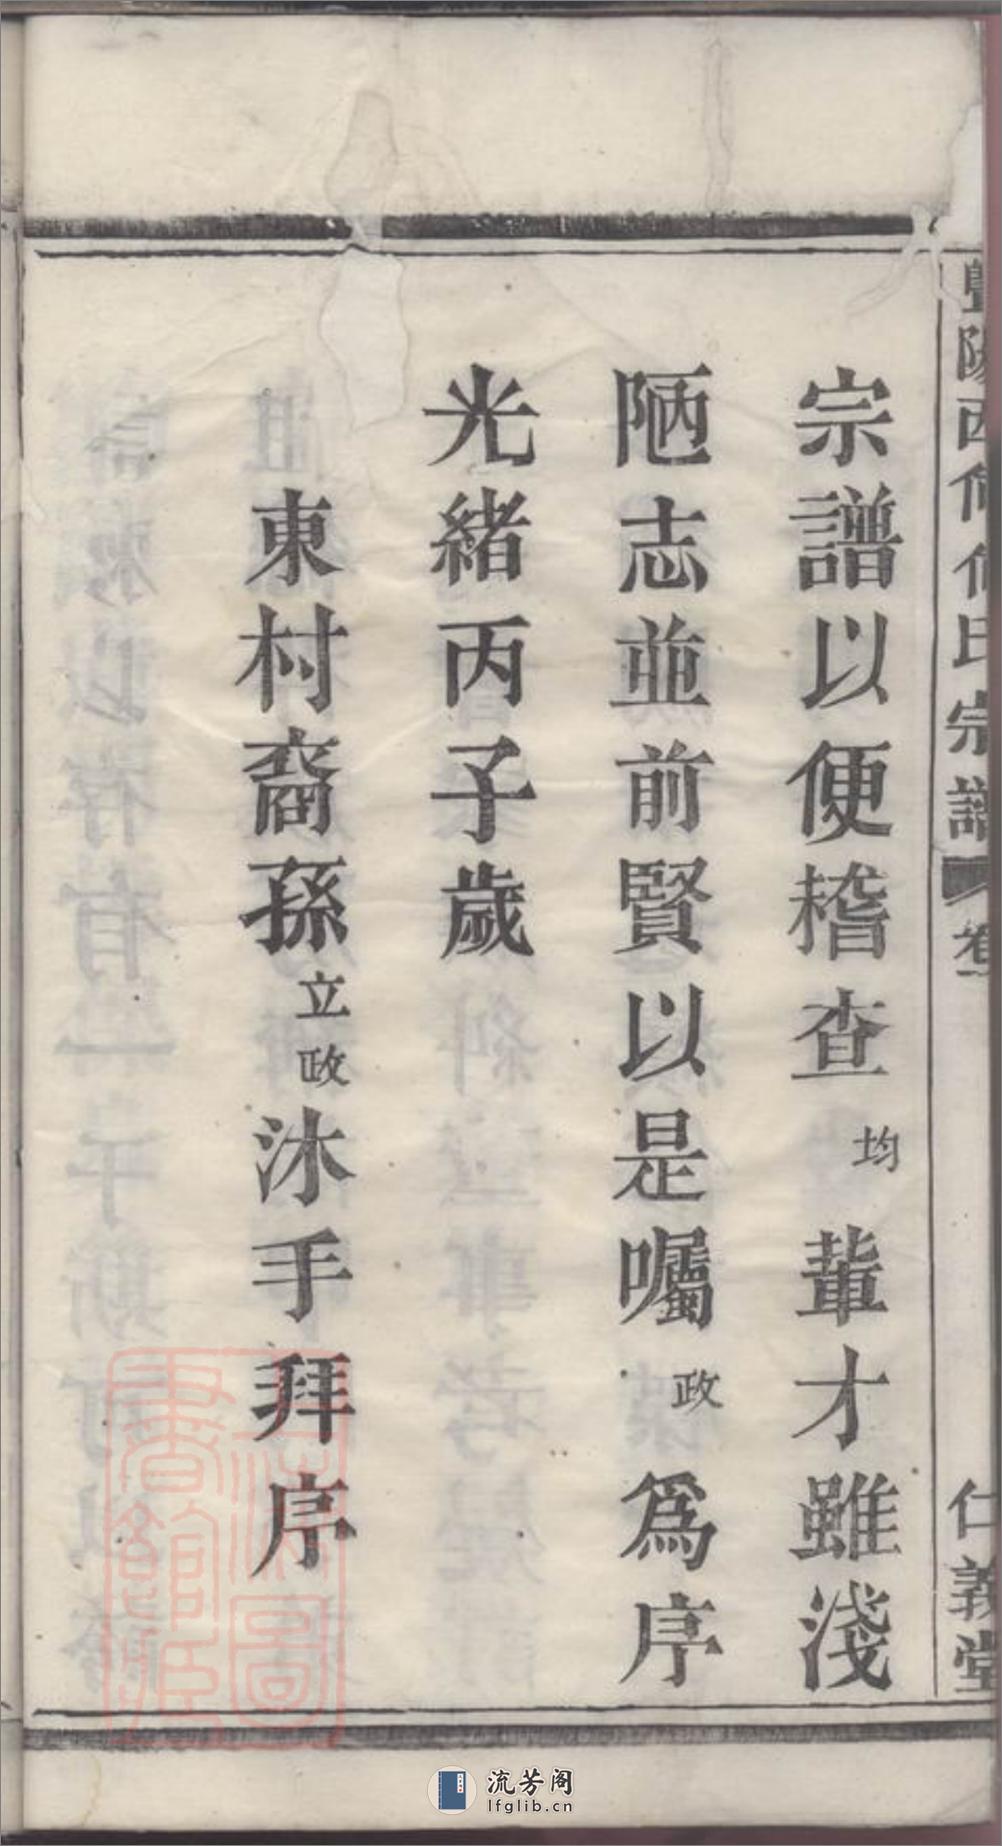 宗譜以便稽查均輩才雖淺
陋志並前賢以是囑政爲序
光緒丙子歲
東村裔孫立政沐手拜序
暨陽西何何氏宗譜 卷
仁義堂
流芳阁
lfglib.cn